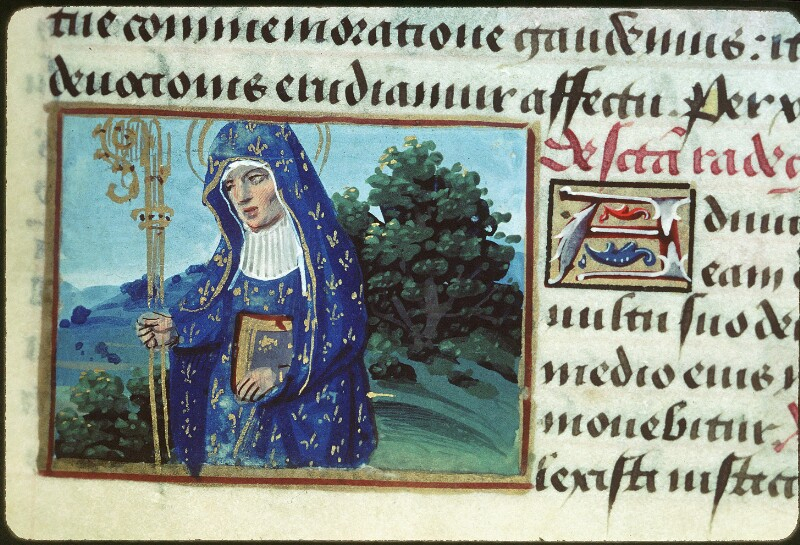 tue commemoratione gaudemus: it
deuocionis erudiamur affectu. Per
De sc̄tā radeg
Adiuu
eam
uultu suo de
medio eius
mouebitur
lexisti iusticia